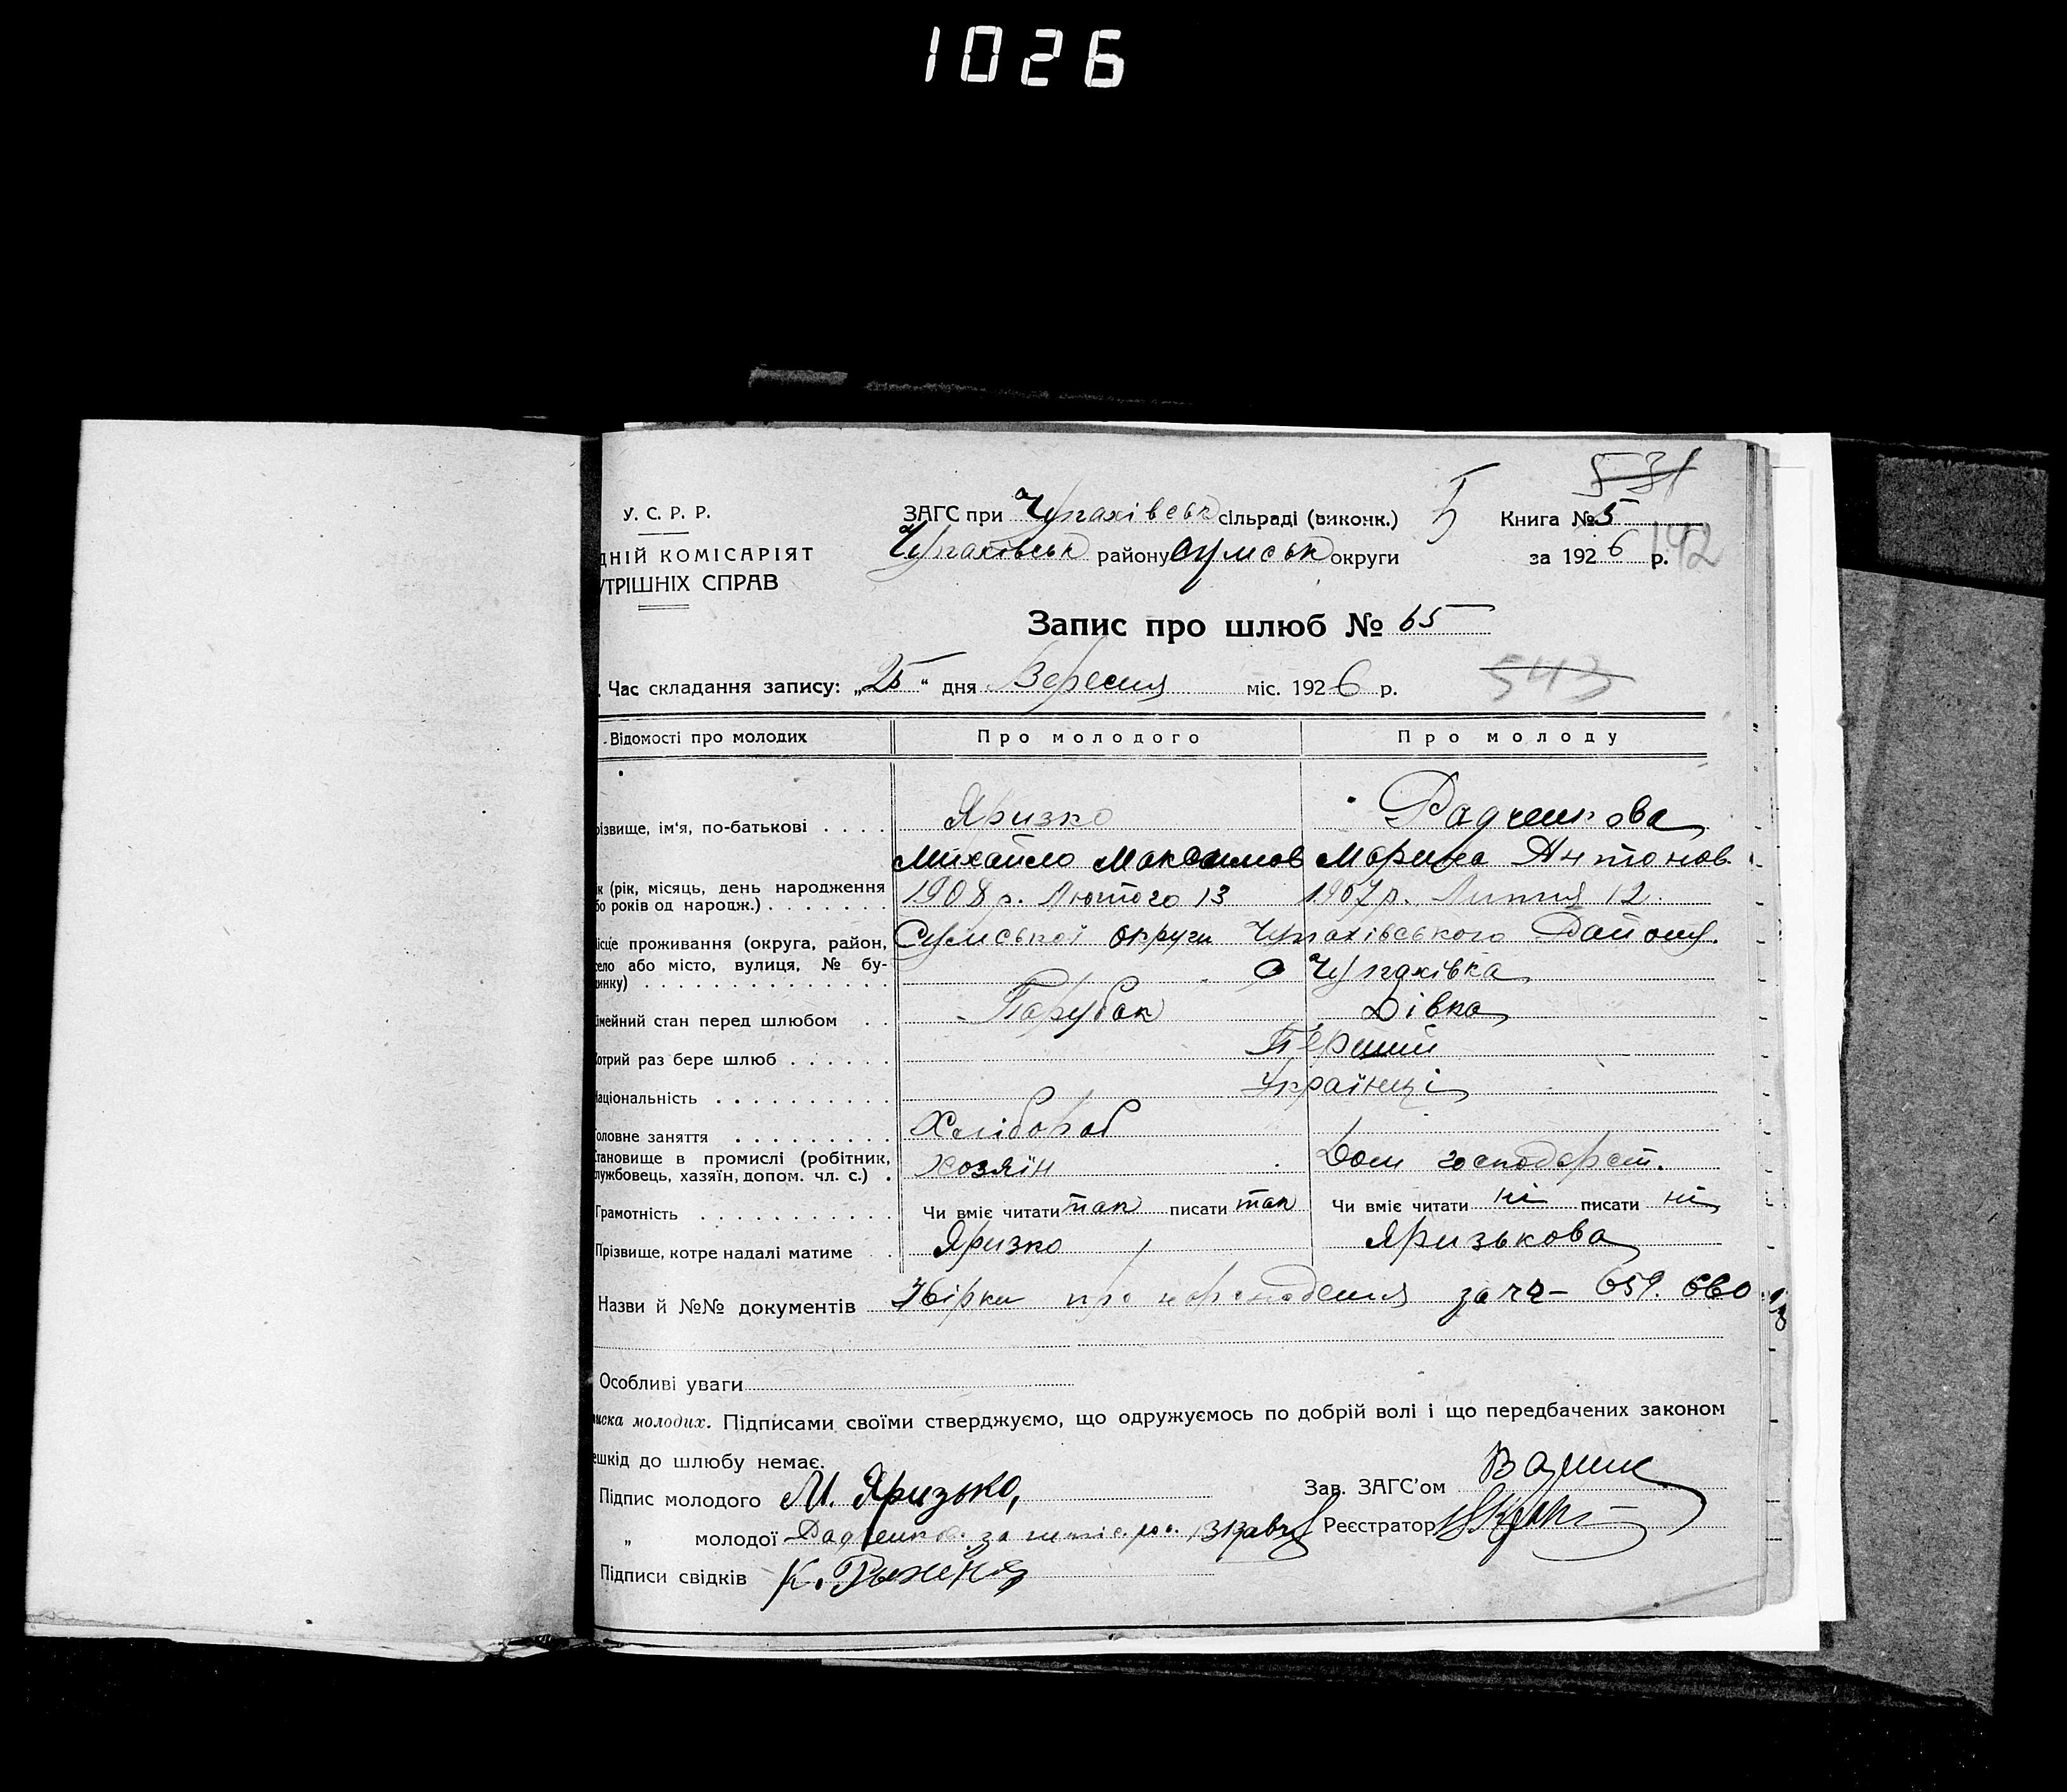 1026
531
У. С. Р. Р.
ЗАГС при Чупахівськ сільраді (виконк.) Б Книга № 5
ДНІЙ КОМІСАРІЯТ Чупаківськ району Сумськ округи за 1926 р. 142
УТРІШНІХ СПРАВ
Запис про шлюб № 65
543
. Час складання запису: „25" дня Вересня міс. 1926 р.
Відомості про молодих Про молодого Про молоду
різвище, ім'я, по-батькові . . . . Яризко Радченкова
Михайло Максимов Марина Антонов.
ік (рік, місяць, день народження 1908 р. Лютого 13 1907 р. Липня 12
бо років од народж.) . . . . . . .
ісце проживання (округа, район, Сумської округи Чупахівського Району.
село або місто, вулиця, № бу- с Чупахівка
динку) . . . . . . . . . . . . . .
імейний стан перед шлюбом . . Парубак Дівка
Котрий раз бере шлюб . . . . . . Перший
Національність . . . . . . . . . . Українці
Головне заняття . . . . . . . . . Хлібороб
Становище в промислі (робітник, Хозяїн Дом господарст.
службовець, хазяїн, допом. чл. с.) .
Грамотність . . . . . . . . . . . Чи вміє читати так писати так Чи вміє читати ні писати ні
Прізвище, котре надалі матиме . . Яризко Яризькова
Назви й №№ документів про за чч– 659. 660
Особливі уваги
иска молодих. Підписами своїми стверджуємо, що одружуємось по добрій волі і що передбачених законом
ешкід до шлюбу немає.
Підпис молодого М. Яризько, Зав. ЗАГС'ом
„ молодої за Реєстратор
Підписи свідків К.